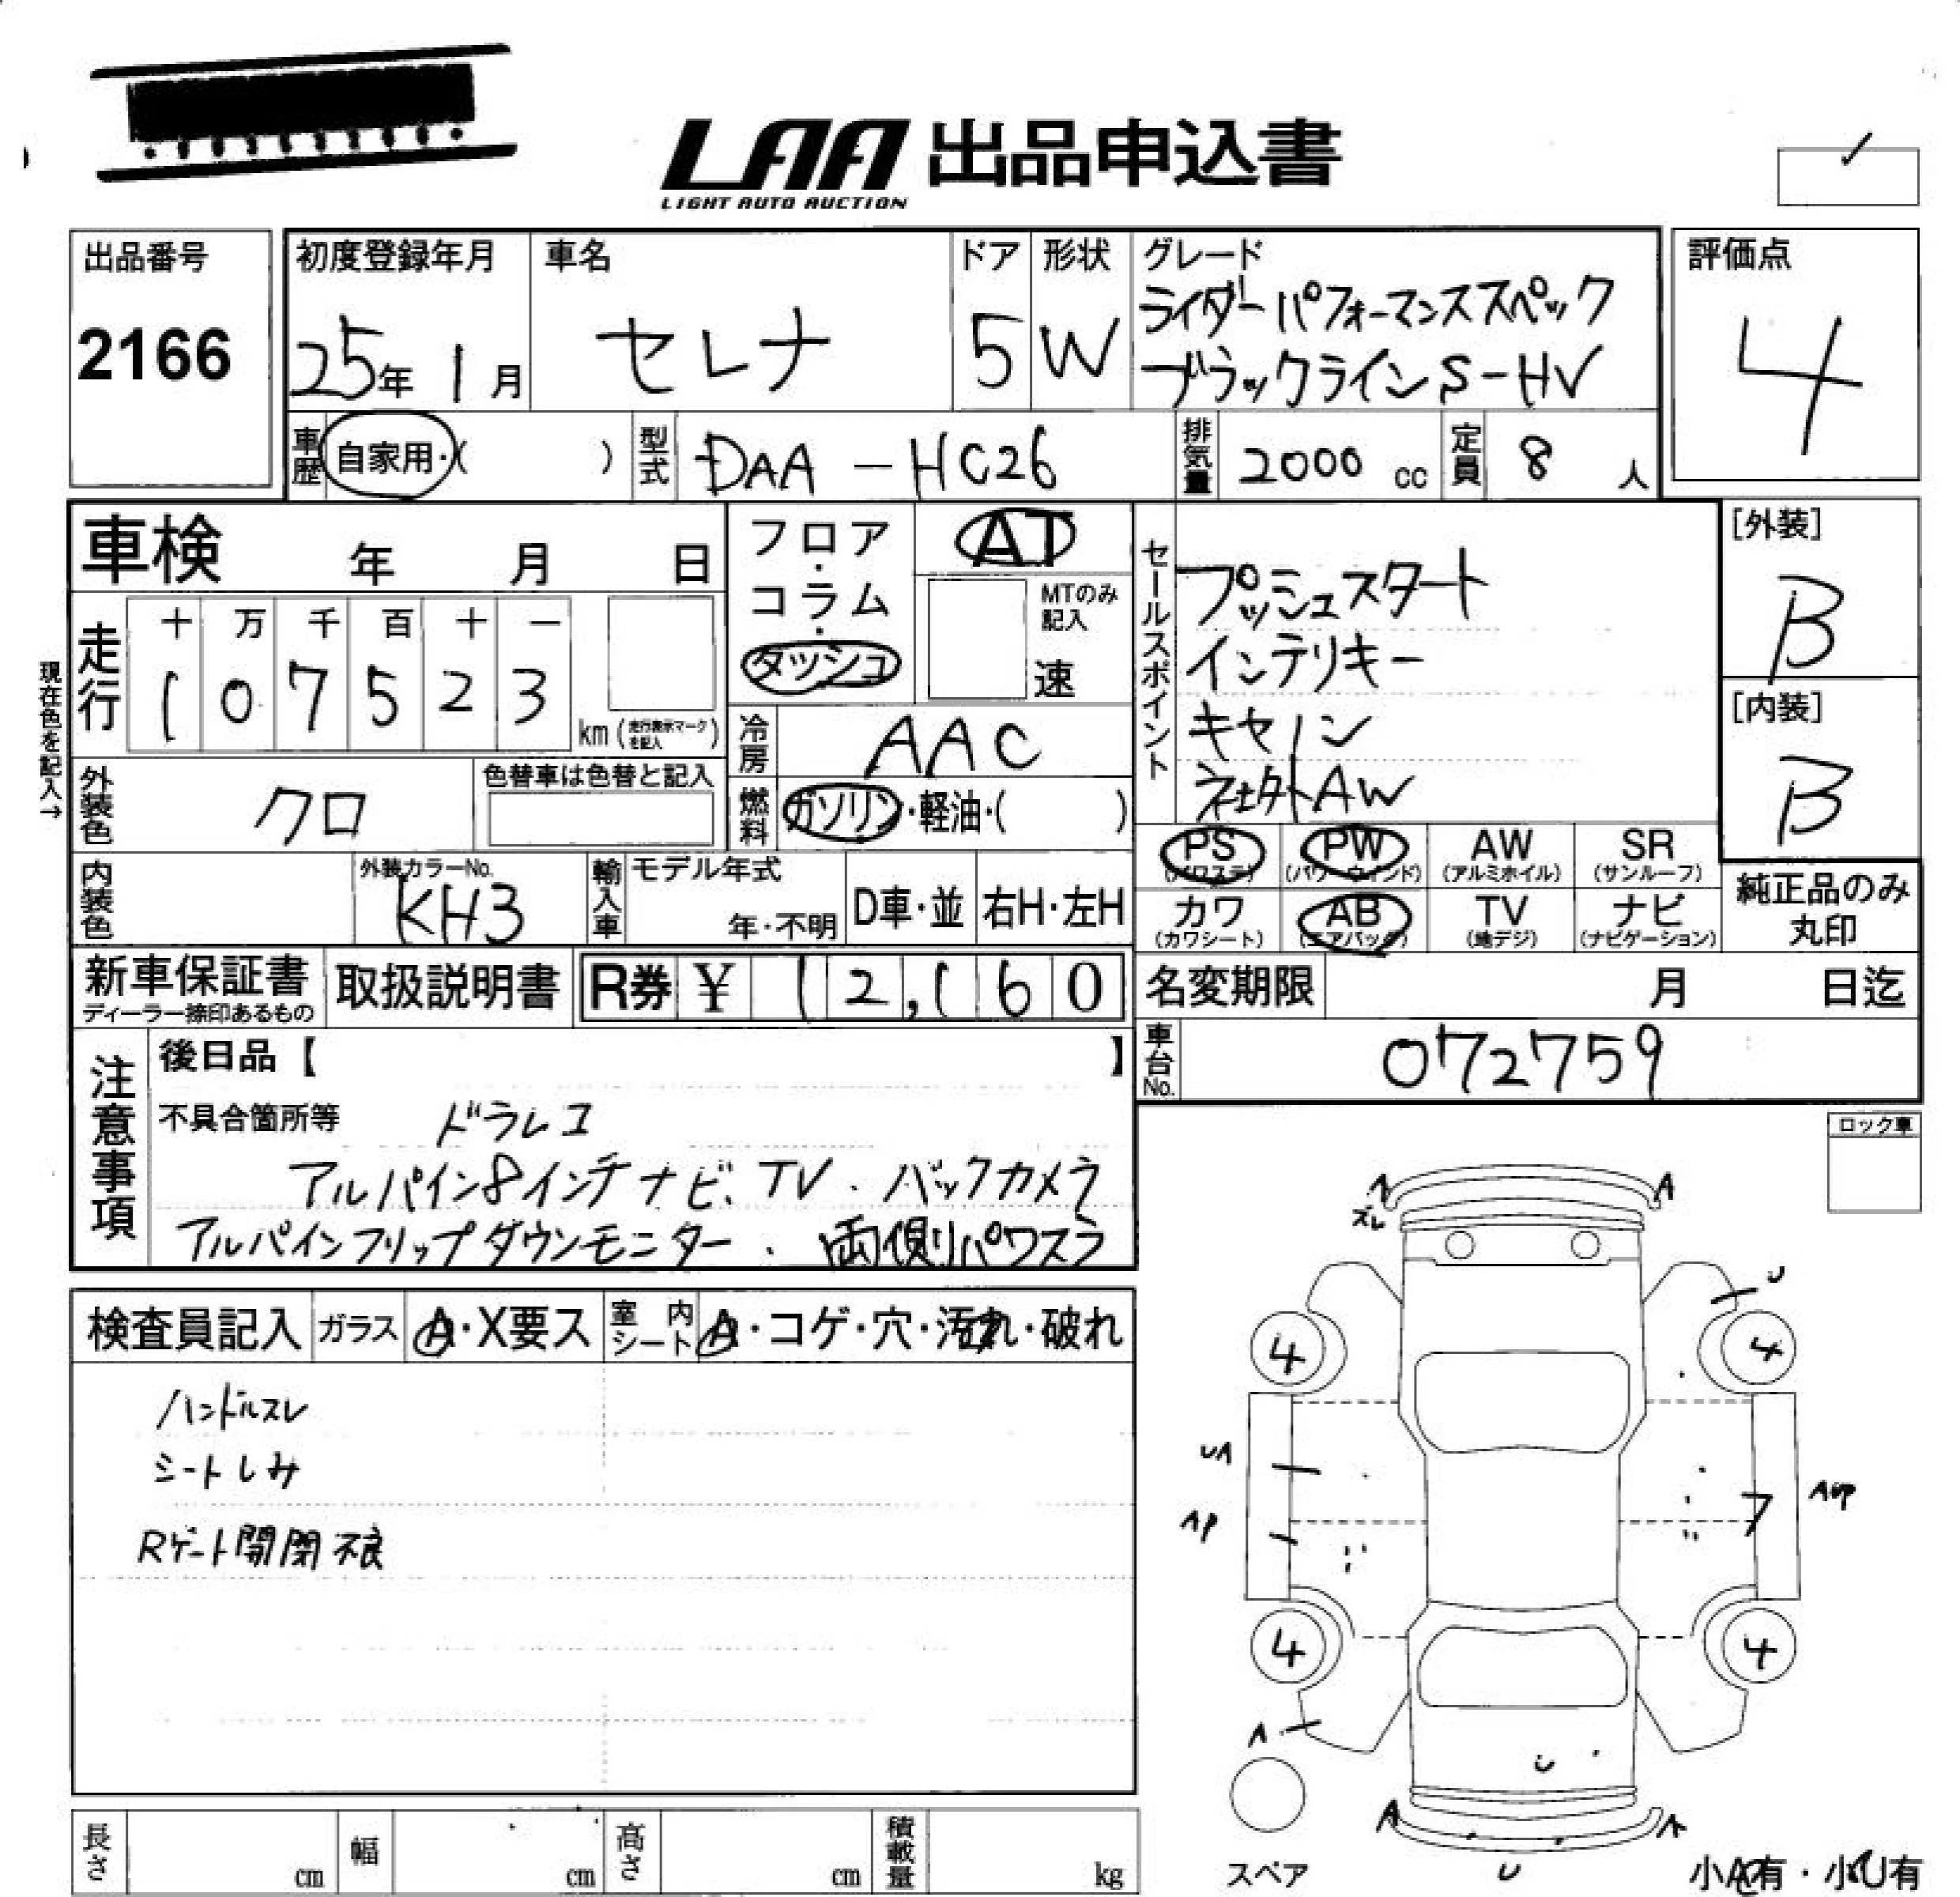 LAA 出品申込書
LIGHT AUTO AUCTION
出品番号
2166
初度登録年月
25年 1月
車名
セレナ
ドア
5
形状
W
グレード
ライダーパフォーマンススペック
ブラックラインS-HV
評価点
4
車歴 自家用・( )
型式 DAA-HC26
排気量 2000 cc
定員 8 人
車検 年 月 日
フロア・コラム・ダッシュ
AT
MTのみ記入
速
セールスポイント
プッシュスタート
インテリキー
キセノン
社外AW
[外装]
B
[内装]
B
現在色を記入→
走行
十 万 千 百 十 一
1 0 7 5 2 3
km (走行表示マークを記入)
冷房 AAC
燃料 ガソリン・軽油・( )
外装色 クロ
色替車は色替と記入
PS (パワステ) PW (パワーウィンド) AW (アルミホイル) SR (サンルーフ)
カワ (カワシート) AB (エアバッグ) TV (地デジ) ナビ (ナビゲーション)
純正品のみ
丸印
内装色
外装カラーNo.
KH3
輸入車
モデル年式
年・不明
D車・並
右H・左H
新車保証書
ディーラー捺印あるもの
取扱説明書
R券 ¥ 12,160
名変期限 月 日迄
車台No. 072759
注意事項
後日品【 】
不具合箇所等 ドラレコ
アルパイン8インチナビ、TV、バックカメラ
アルパインフリップダウンモニター、両側パワスラ
ロック車
検査員記入 ガラス A・X要ス 室内シート A・コゲ・穴・汚れ・破れ
ハンドルスレ
シートしみ
Rゲート開閉不良
A
A
ズレ
U
4
4
UA
AP
4
4
A
U
A
A
U
スペア
小A有・小U有
長さ cm
幅 cm
高さ cm
積載量 kg